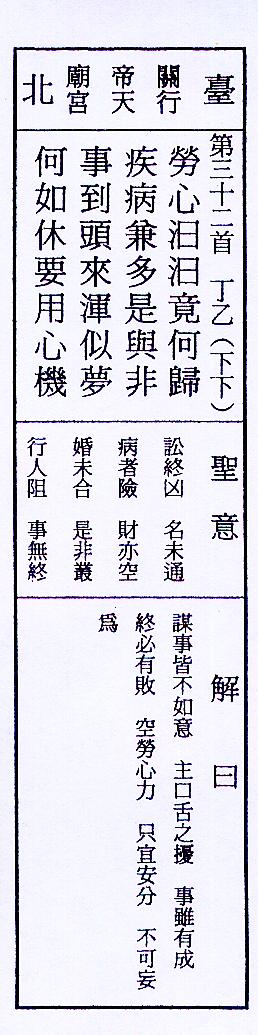 臺
關行
帝天
廟宮
北
第三十二首 丁乙(下下)
勞心汩汩竟何歸
疾病兼多是與非
事到頭來渾似夢
何如休要用心機
聖意
訟終凶 名未通
病者險 財亦空
婚未合 是非叢
行人阻 事無終
解曰
謀事皆不如意 主口舌之擾 事雖有成
終必有敗 空勞心力 只宜安分 不可妄
為